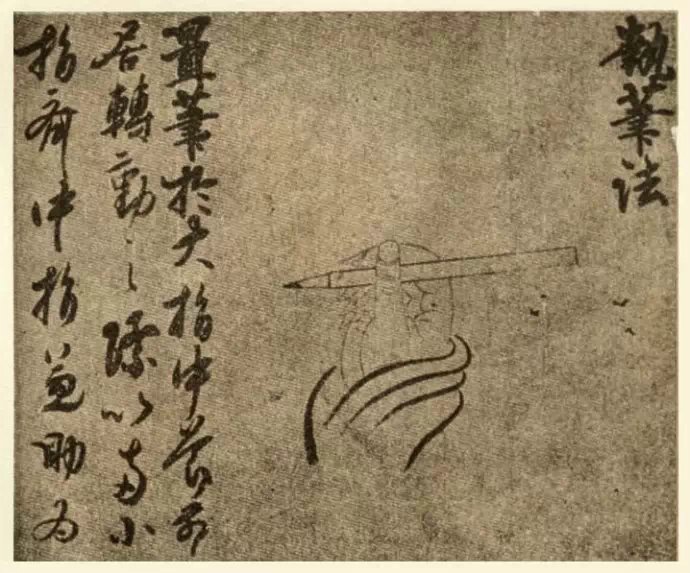 執筆法
置筆於大指中節前
居轉動之際以小
指齊中指兼助為